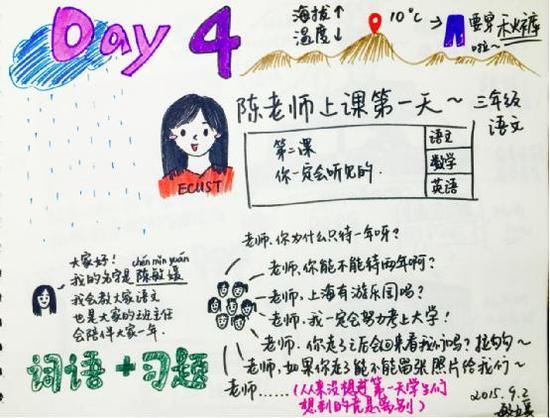 Day 4
海拔↑
温度↓
10°C
→
要穿秋裤
啦~
陈老师上课第一天~
三年级
语文
第二课
你一定会听见的.
语文
数学
英语
ECUST
老师.你为什么只待一年呀?
老师.你能不能待两年啊?
老师.上海有游乐园吗?
老师.我一定会努力考上大学!
老师.你走了之后会回来看我们吗? 拉钩~
老师.如果你走了能不能留张照片给我们~
老师......(从来没想过第一天学生们
想到的竟是离别)
大家好! chén mǐn yuán
我的名字是陈敏媛
我会教大家语文
也是大家的班主任
会陪伴大家一年.
词语+习题
2015.9.2